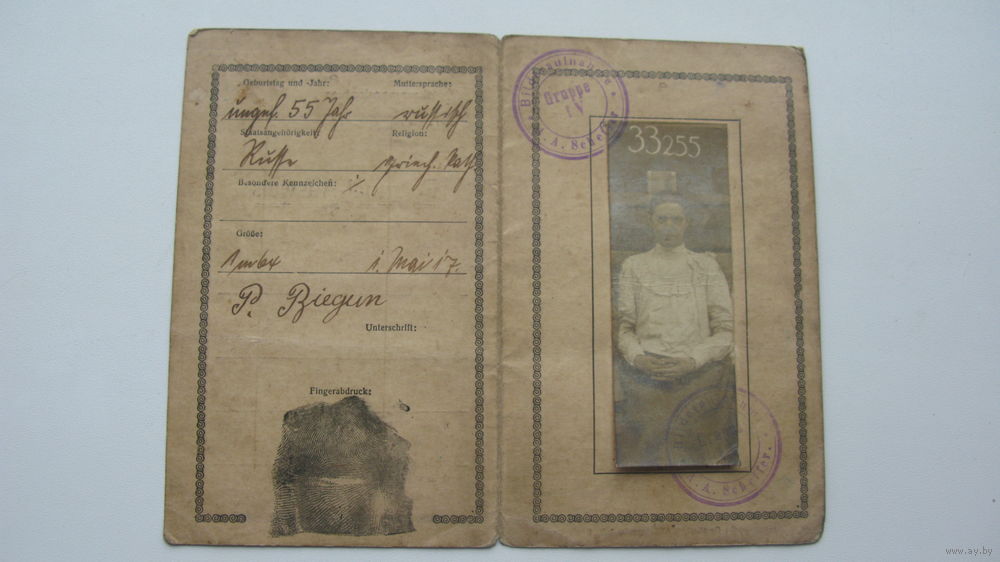 Geburtstag und -Jahr: Muttersprache:
ungef. 55 Jahr russisch
Staatsangehörigkeit: Religion:
Russe griech. Kath
Besondere Kennzeichen: ·/·
Größe:
1. Mai 17.
P. Biegun
Unterschrift:
Fingerabdruck:
Bildaufnahme
Gruppe
IV
A. Scheffer.
33255
A. Scheffer.
www.ay.by